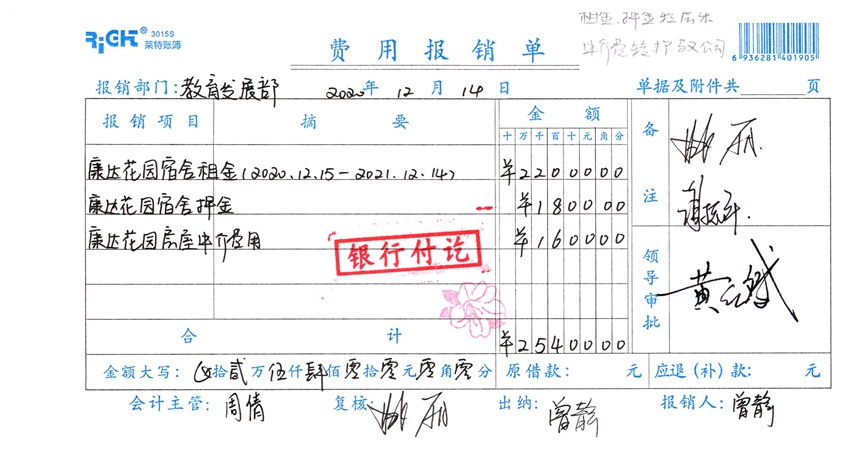 RiGHT 3015S
莱特账簿
租金.押金
中介费转护 公司
费用报销单
6 936281 401905
报销部门:教育发展部 2020年 12月 14日 单据及附件共 页
报销项目 摘要 金额 备注
十万千百十元角分
康达花园宿舍租金(2020.12.15-2021.12.14) ¥2200000
康达花园宿舍押金 ¥180000
康达花园房屋中介费用 ¥160000
银行付讫
领导审批
合计 ¥2540000
金额大写: ⊗拾贰万伍仟肆佰零拾零元零角零分 原借款: 元 应退(补)款: 元
会计主管: 周倩 复核: 出纳: 曾静 报销人: 曾静